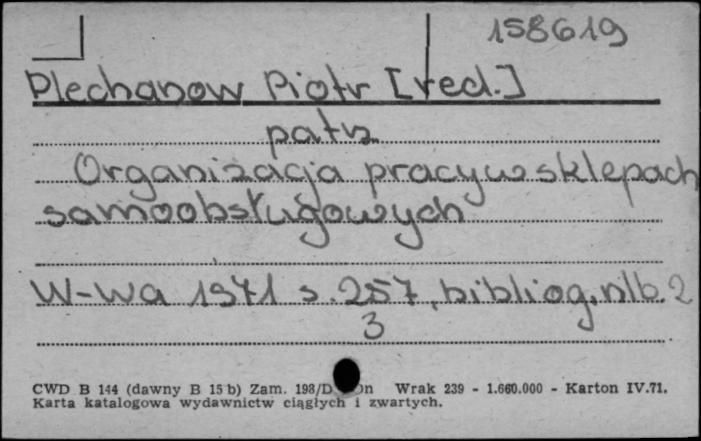 158619
Plechanow Piotr [red.]
patrz
Organizacja pracy w sklepach
samoobsługowych
W-wa 1971 s. 257, bibliog, nlb. 2
3
CWD B 144 (dawny B 15 b) Zam. 198/D Wrak 239 - 1.660.000 - Karton IV.71.
Karta katalogowa wydawnictw ciągłych i zwartych.